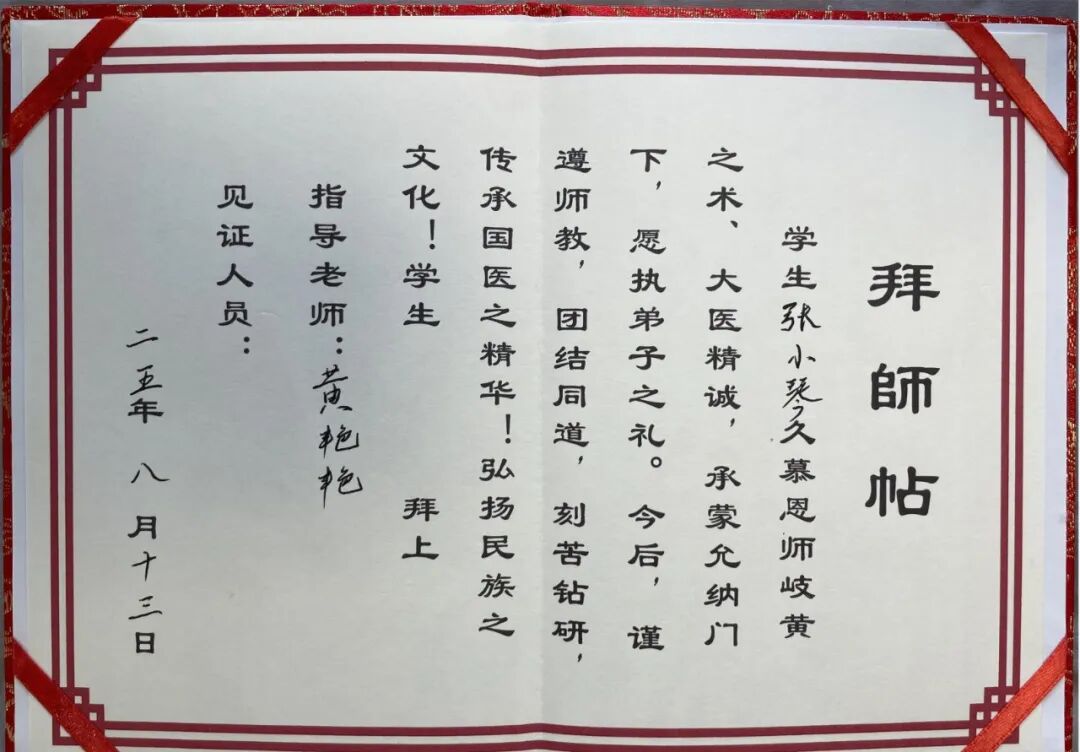 拜師帖
学生张小琴久慕恩师岐黄
之术、大医精诚，承蒙允纳门
下，愿执弟子之礼。今后，谨
遵师教，团结同道，刻苦钻研，
传承国医之精华！弘扬民族之
文化！学生 拜上
指导老师：黄艳艳
见证人员：
二五年八月十三日